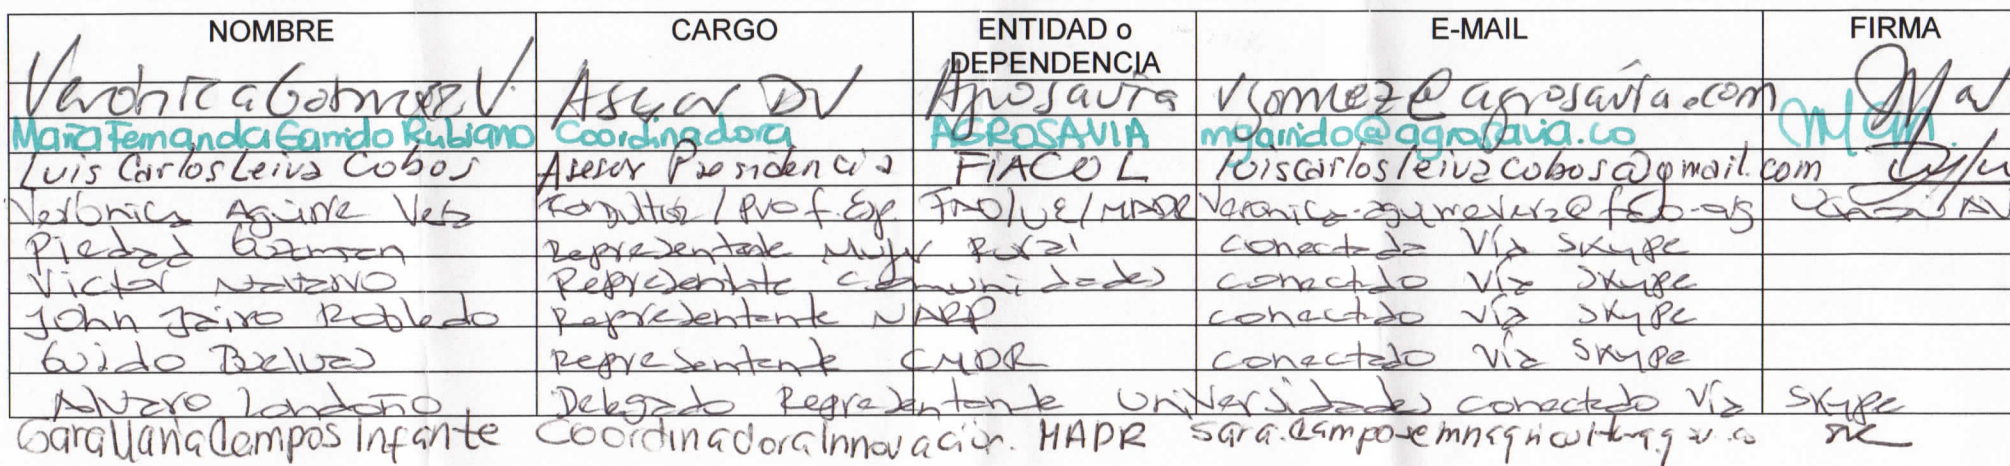 NOMBRE CARGO ENTIDAD o DEPENDENCIA E-MAIL FIRMA
Veronica Gomez V. Asesor DV Agrosavia vgomez@agrosavia.com
María Fernanda Garrido Rubiano Coordinadora AGROSAVIA mgarrido@agrosavia.co
Luis Carlos Leiva Cobos Asesor Presidencia FIACOL luiscarlosleivacobos@gmail.com
Verónica Aguirre Vera FAO/UE/MADR
Piedad Guzman Representante Mujer Rural conectada Vía Skype
Victor Representante Comunidades conectado Vía Skype
John Jairo Robledo Representante NARP conectado Vía Skype
Guido Representante CMDR conectado Vía Skype
Alvaro Londoño Delegado Representante Universidades conectado Vía Skype
Sara Campos Infante Coordinadora Innovación. MADR